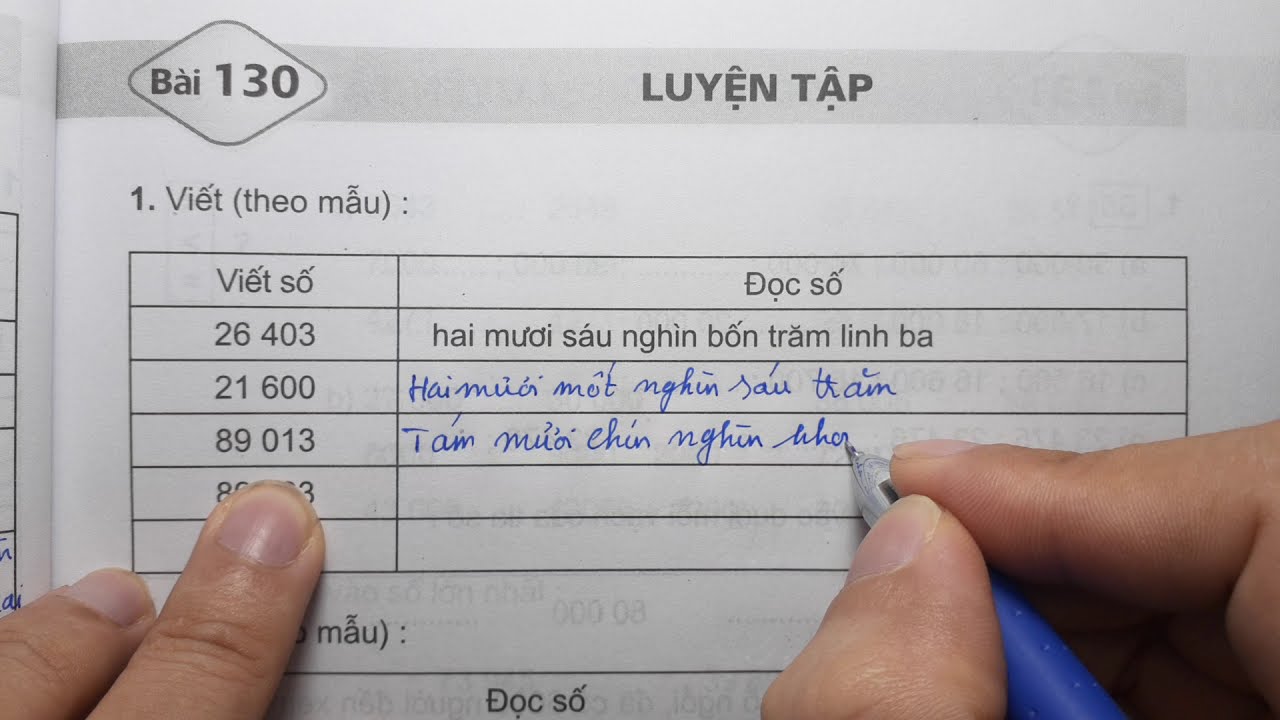 Bài 130 LUYỆN TẬP
1. Viết (theo mẫu) :
Viết số Đọc số
26 403 hai mươi sáu nghìn bốn trăm linh ba
21 600 Hai mươi mốt nghìn sáu trăm
89 013 Tám mươi chín nghìn kho
mẫu) :
Đọc số